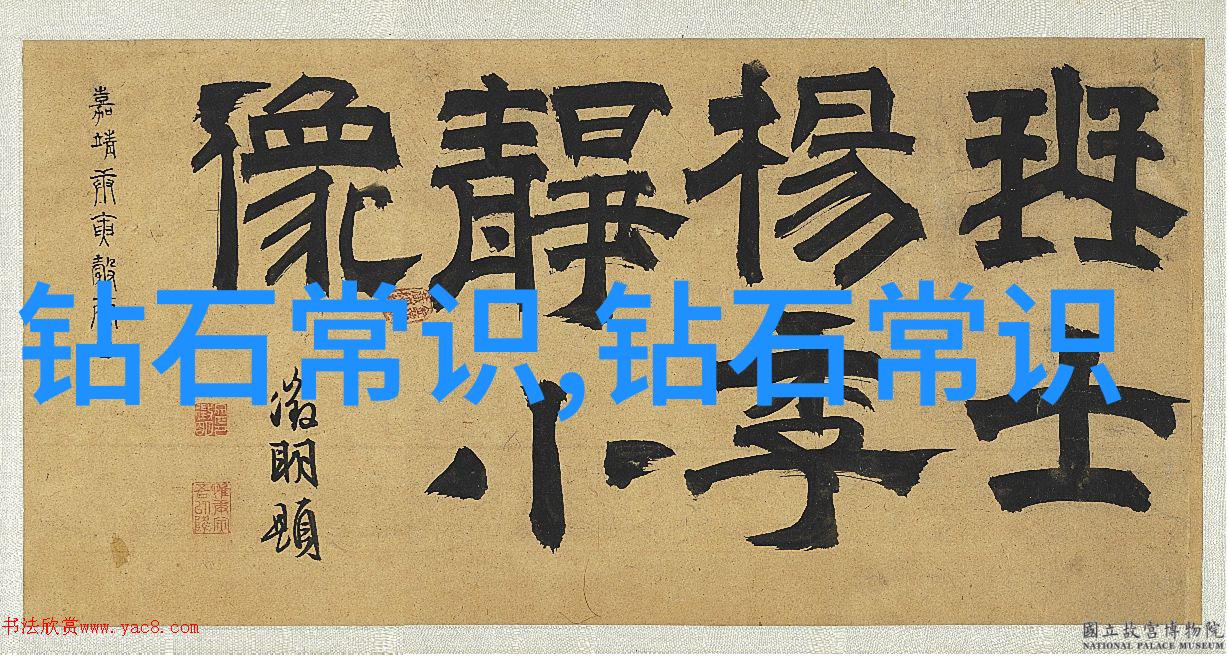 士
楊季
靜小
像
嘉靖庚寅穀雨
徵明題
钻石常识,钻石常识
书法欣赏www.yac8.com
國立故宮博物院
NATIONAL PALACE MUSEUM